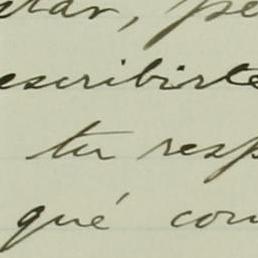 star, pe
escribirte
tu resp
qué con